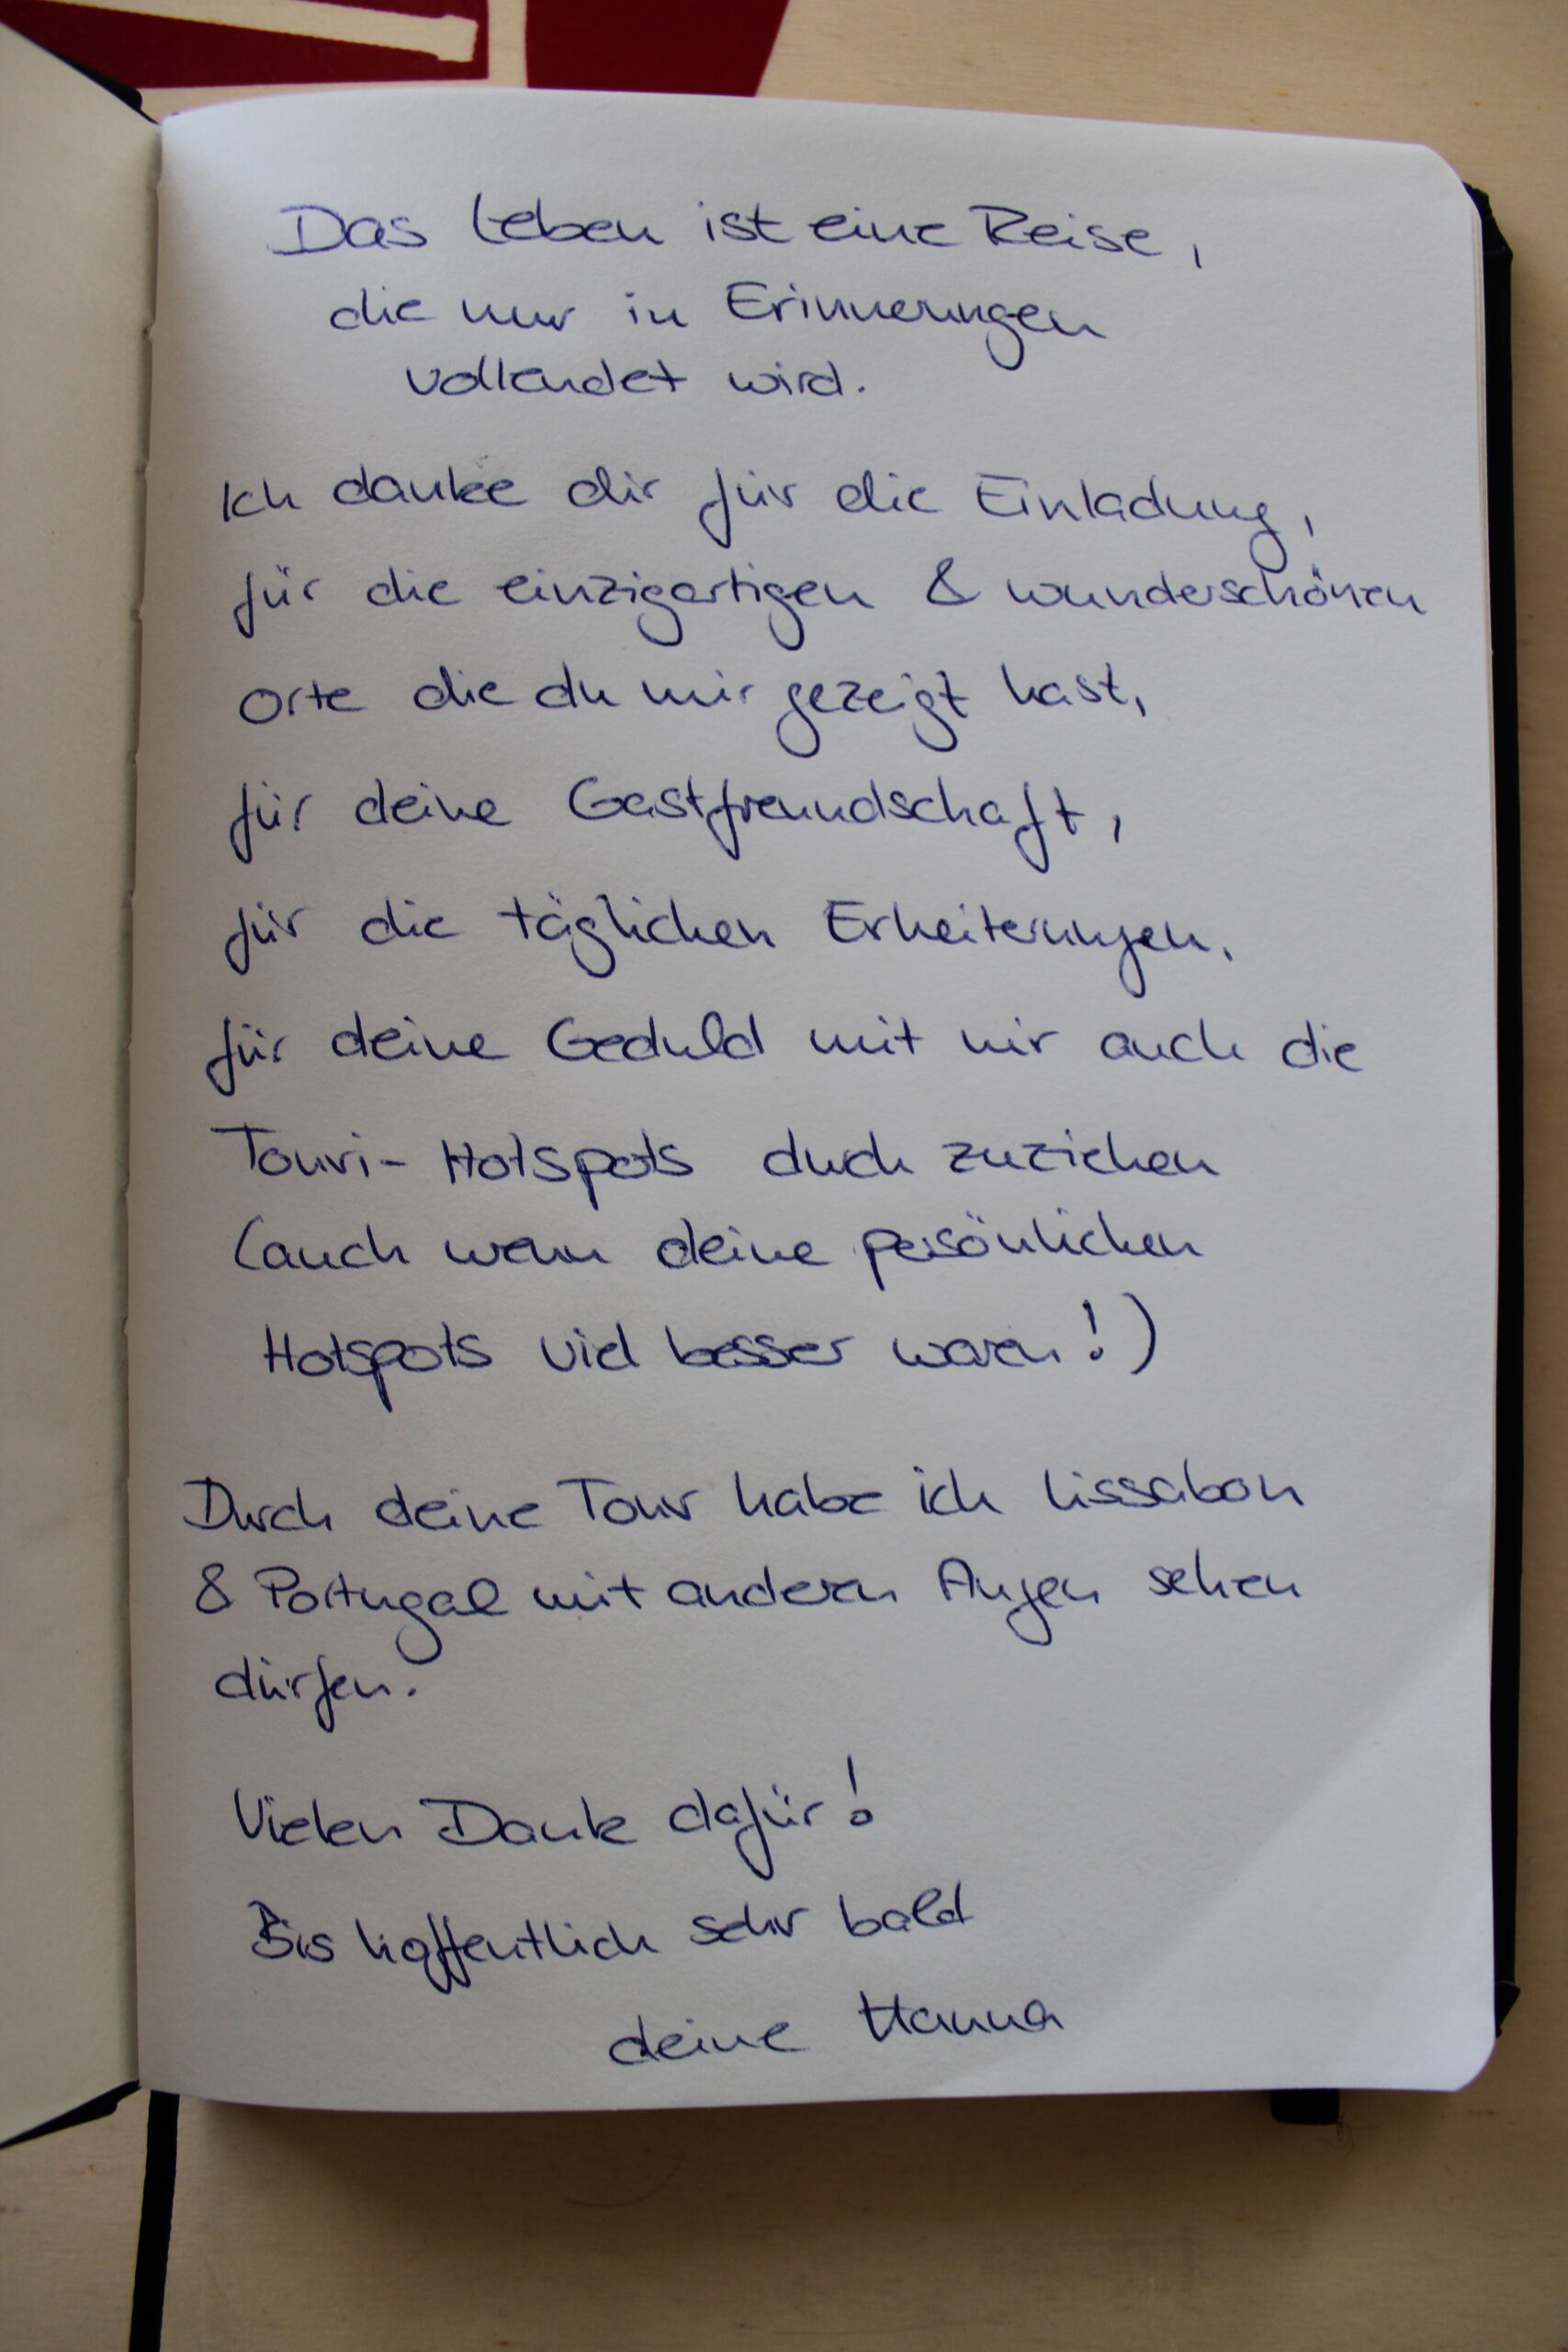 Das Leben ist eine Reise,
die nur in Erinnerungen
vollendet wird.
Ich danke dir für die Einladung,
für die einzigartigen & wunderschönen
Orte die du mir gezeigt hast,
für deine Gastfreundschaft,
für die täglichen Erheiterungen,
für deine Geduld mit mir auch die
Touri- Hotspots durch zuziehen
(auch wenn deine persönlichen
Hotspots viel besser waren!)
Durch deine Tour habe ich Lissabon
& Portugal mit anderen Augen sehen
dürfen.
Vielen Dank dafür!
Bis hoffentlich sehr bald
deine Hanna